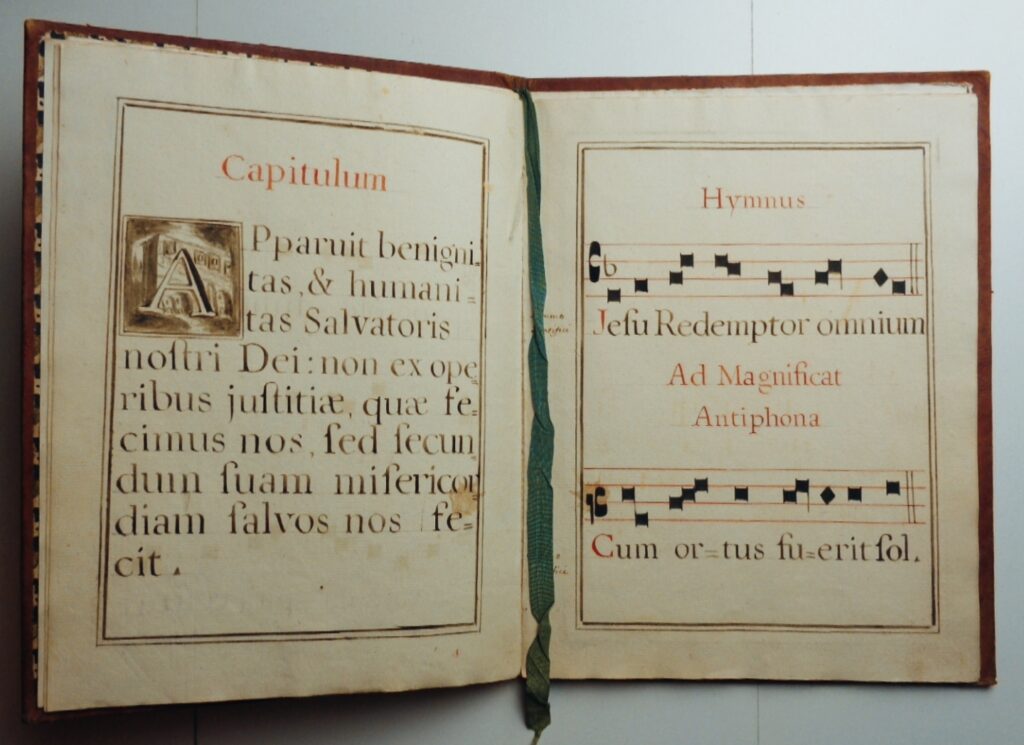 Capitulum
APparuit benigni=
tas, & humani=
tas Salvatoris
noſtri Dei: non ex ope
ribus juſtitiæ, quæ fe=
cimus nos, ſed ſecun
dum ſuam miſericor
diam ſalvos nos fe=
cit.
Hymnus
Jeſu Redemptor omnium
Ad Magnificat
Antiphona
Cum or=tus fu=erit ſol.